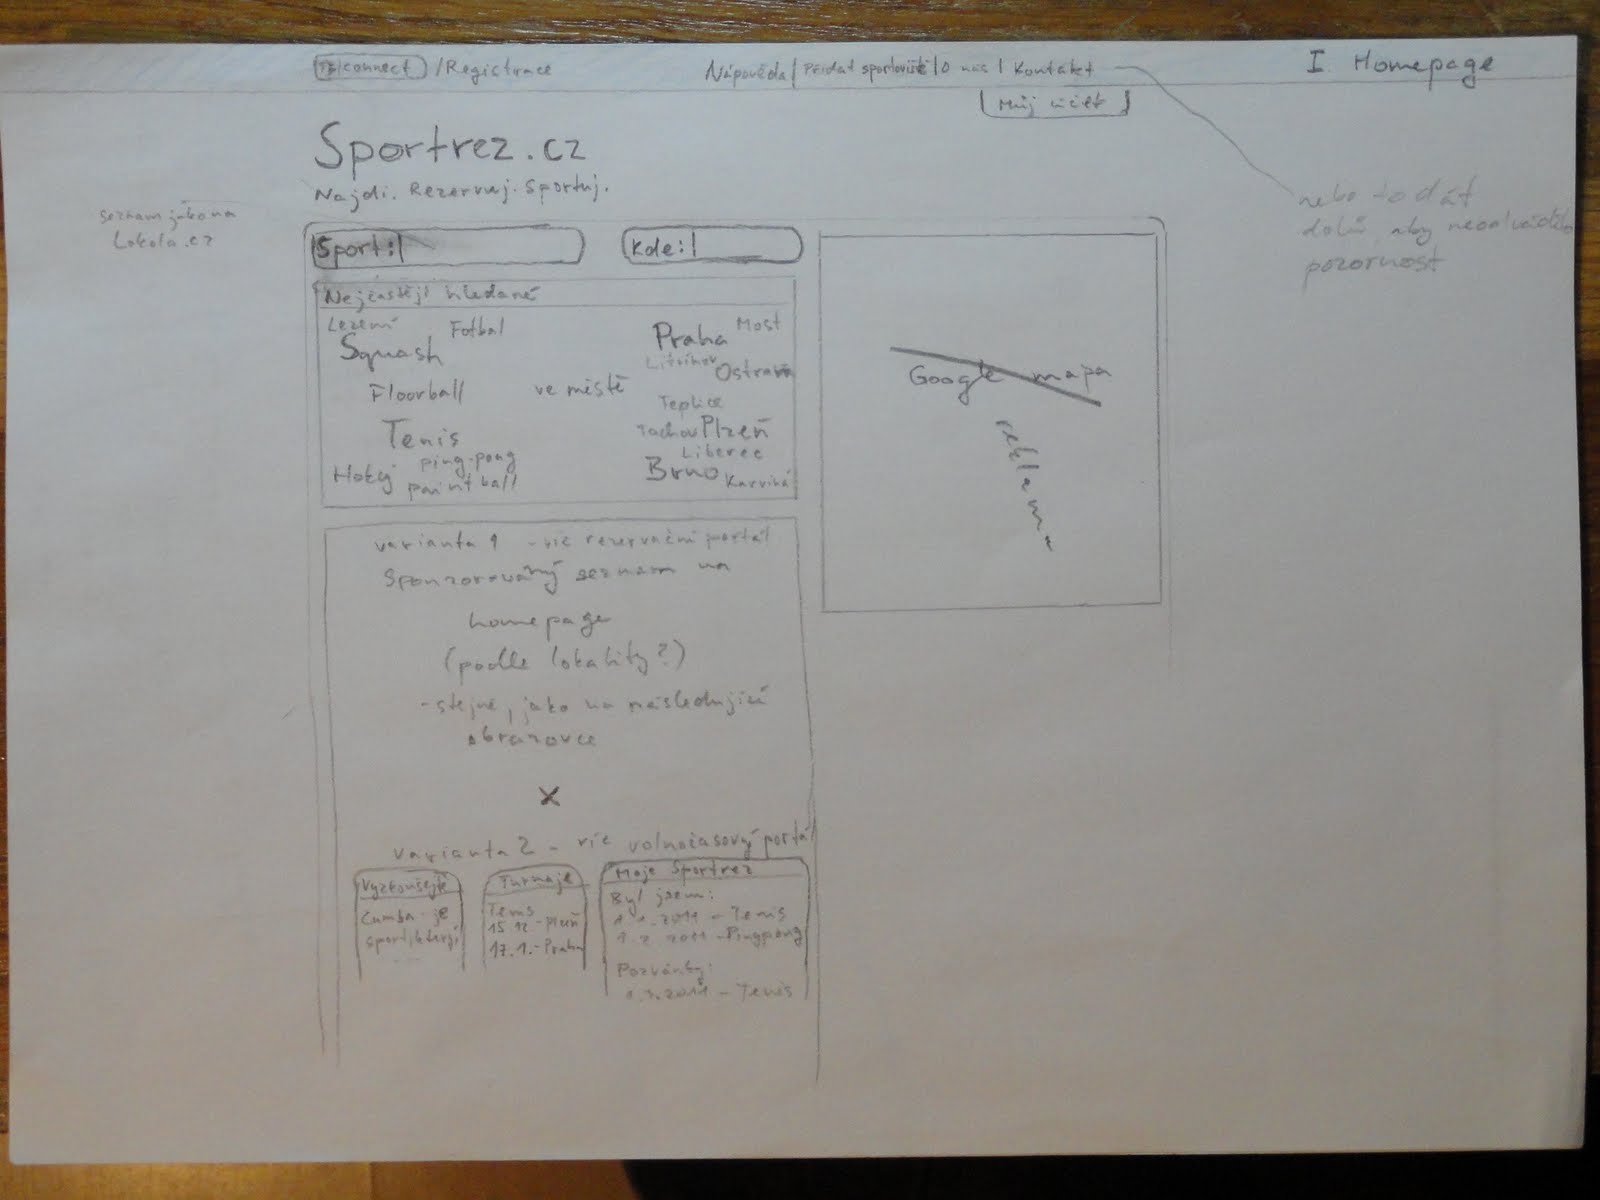 connect /Registrace
Nápověda | Přidat sportoviště | O nás | Kontakt
I Homepage
Můj účet
Sportrez.cz
Najdi. Rezervuj. Sportuj.
seznam jako na
Lokola.cz
nebo to dát
dolů, aby neodvádělo
pozornost
Sport:|
Kde:|
Nejčastěji hledané
Lezení
Fotbal
Squash
Floorball
Tenis
ping-pong
Hokej
paintball
ve městě
Praha
Most
Litvínov
Ostrava
Teplice
Tachov
Plzeň
Liberec
Brno
Karviná
Google mapa
reklama
varianta 1 - víc rezervační portál
Sponzorovaný seznam na
homepage
(podle lokality?)
- stejné, jako na následující
obrazovce
X
varianta 2 - víc volnočasový portál
Vyzkoušejte
Cumba - je
sport, který
Turnaje
Tenis
15.12. - Plzeň
17.1. - Praha
Moje Sportrez
Byl jsem:
1.1.2011 - Tenis
1.2.2011 - Pingpong
Pozvánky:
1.3.2011 - Tenis